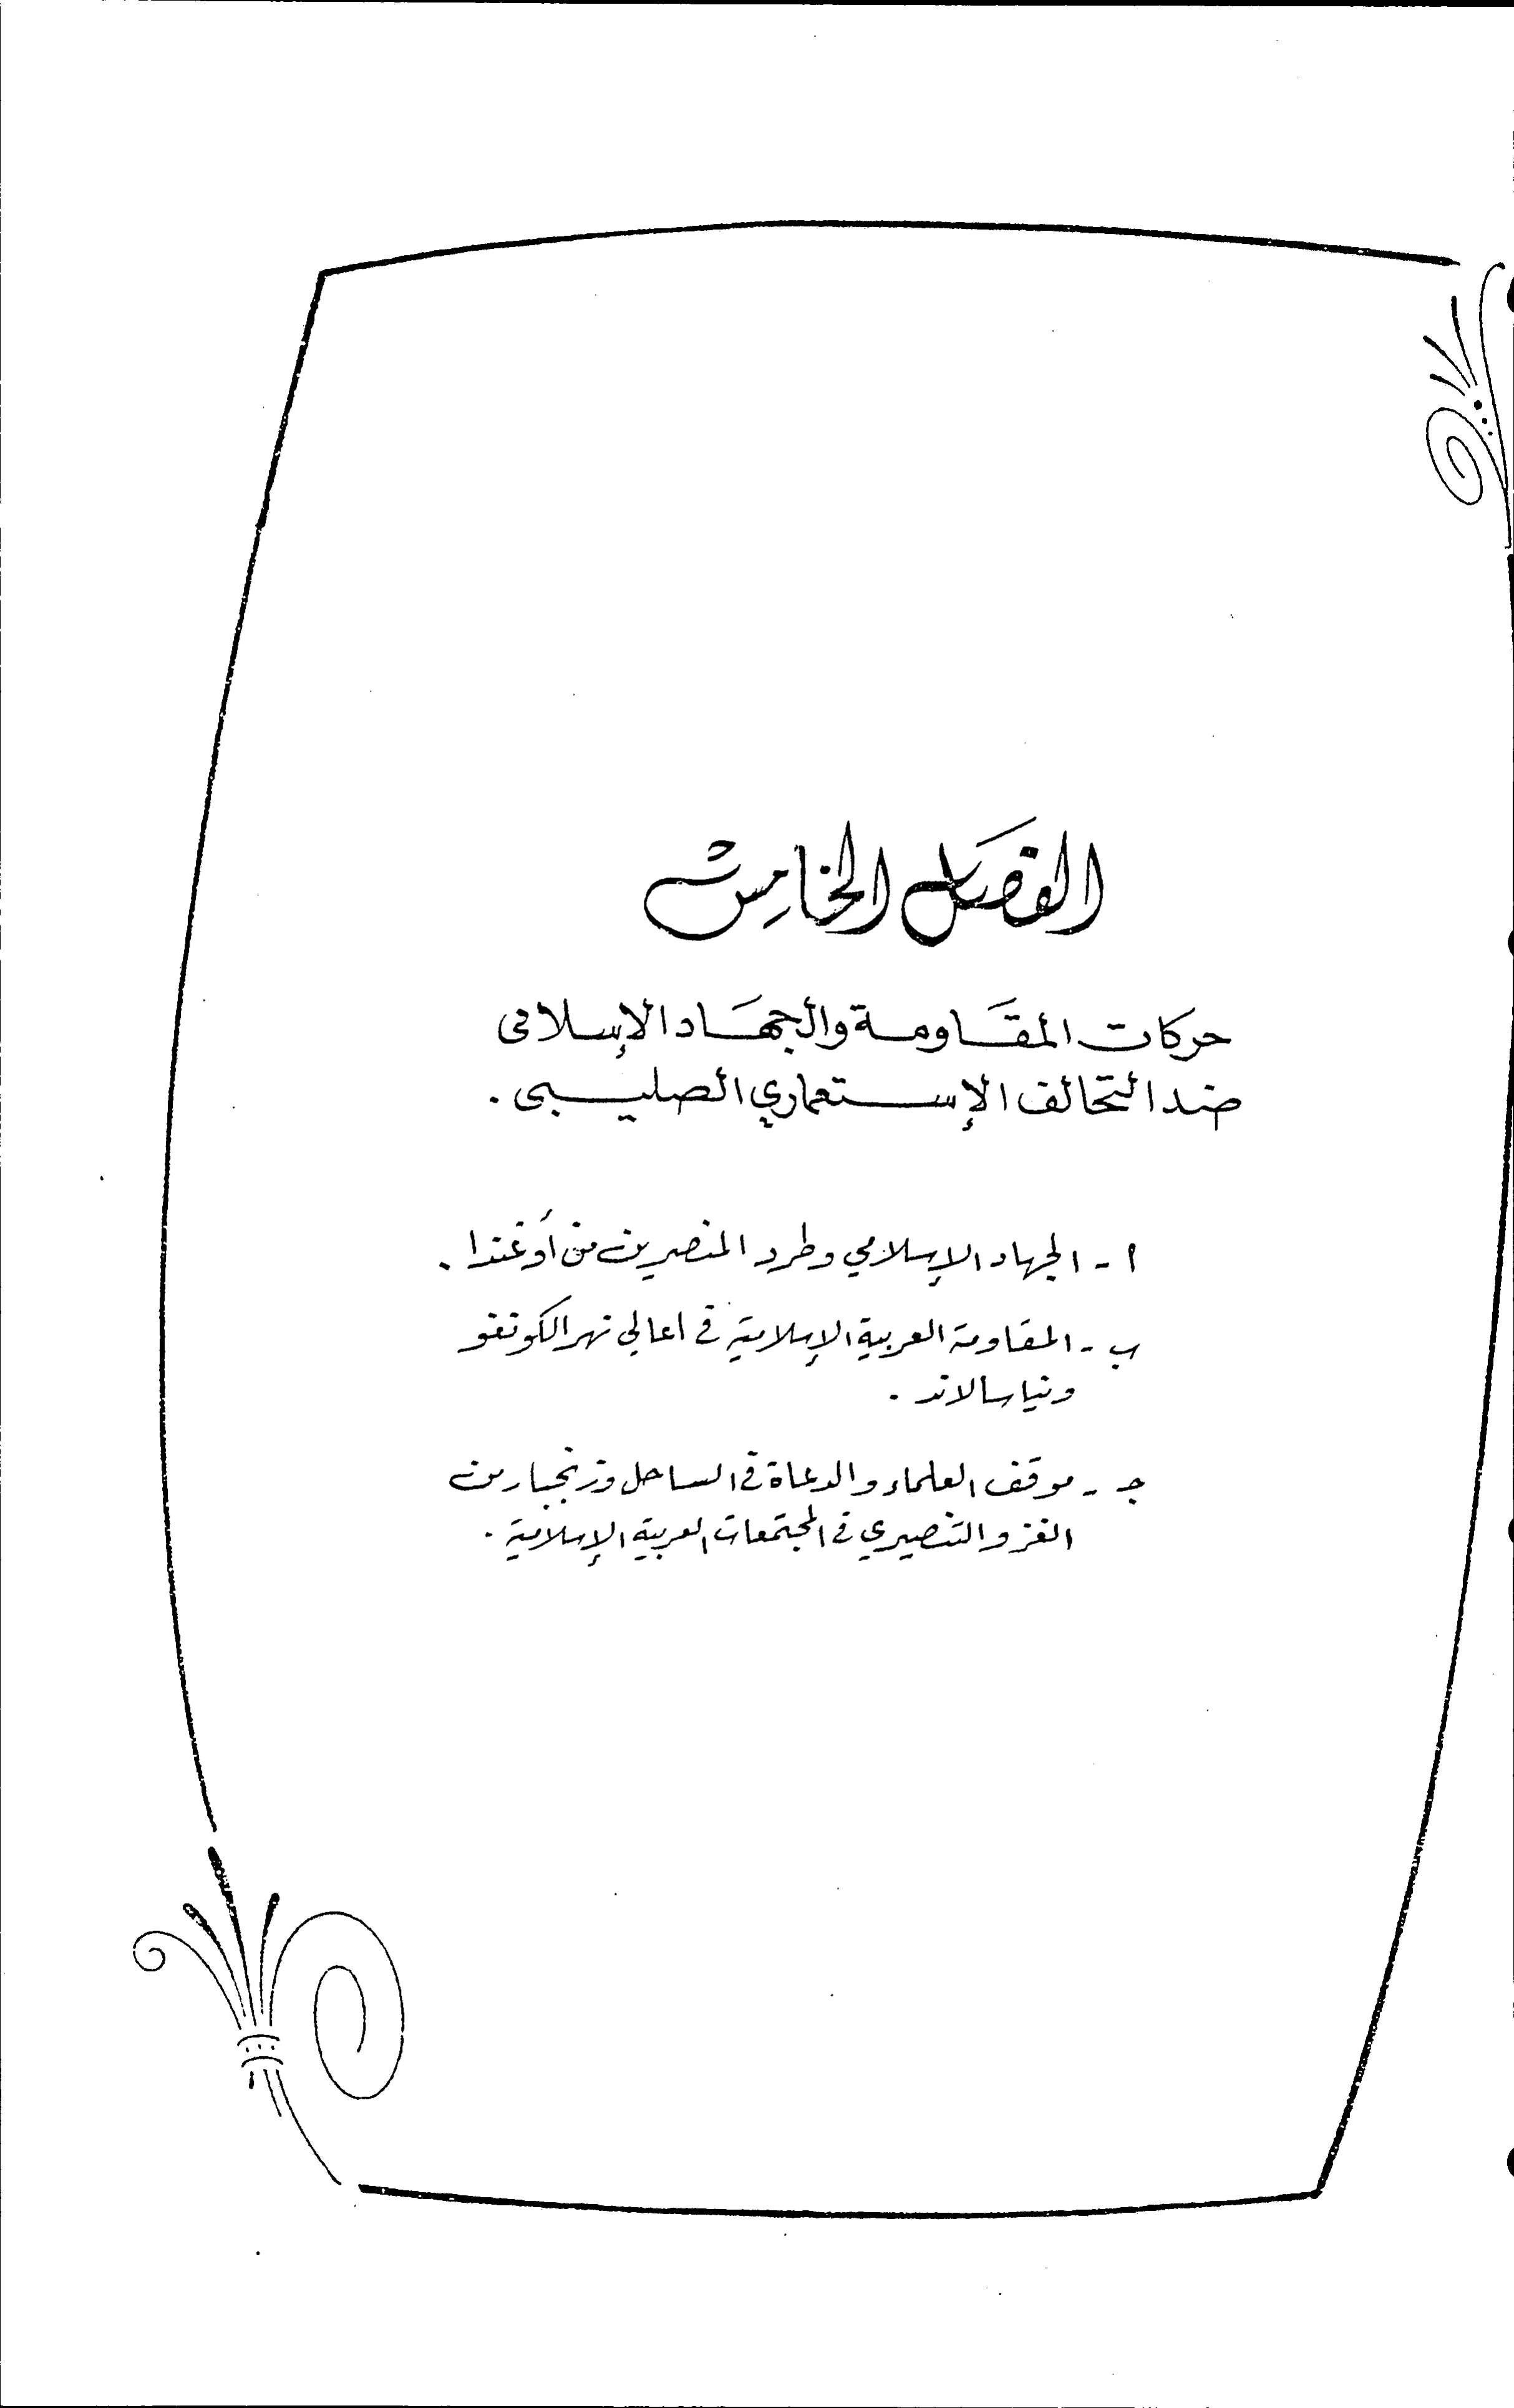 الفصل الخامس
حركات المقاومة والجهاد الإسلامى
ضد التحالف الإستعماري الصليبى .
ا - الجهاد الإسلامي وطرد المنصرين من أوغندا .
ب - المقاومة العربية الإسلامية فى اعالي نهر الكونغو
ونياسالاند .
جـ - موقف العلماء والدعاة فى الساحل وزنجبار من
الغزو التنصيري فى المجتمعات العربية الإسلامية .